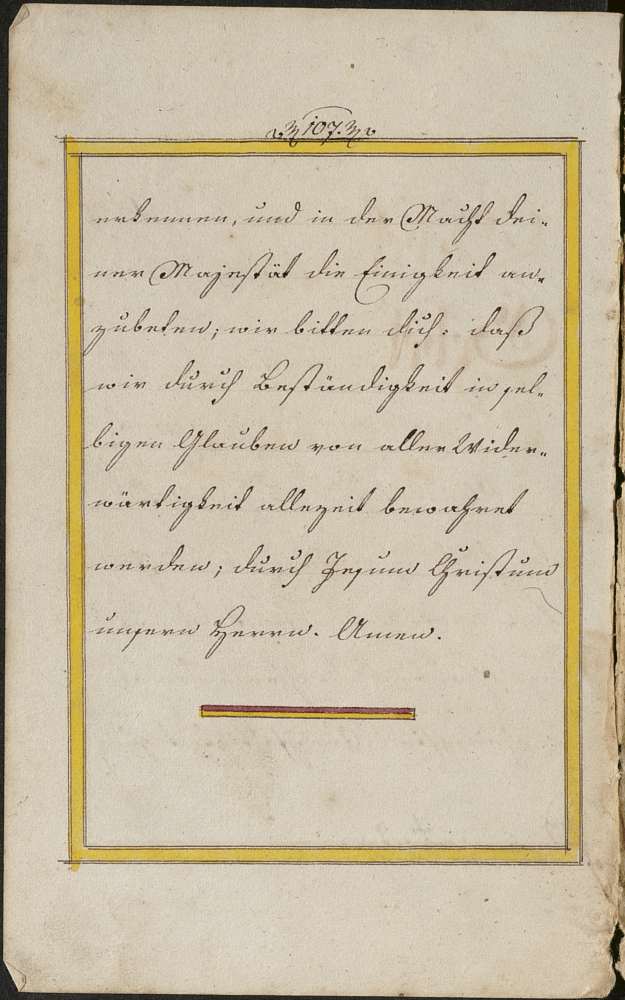 107.
erkennen, und in der Macht dei-
ner Majestät die Einigkeit an-
zubeten; wir bitten dich: daß
wir durch Beständigkeit in sel-
bigen Glauben von aller Wider-
wärtigkeit allezeit bewahret
werden; durch Jesum Christum
unsern Herrn. Amen.